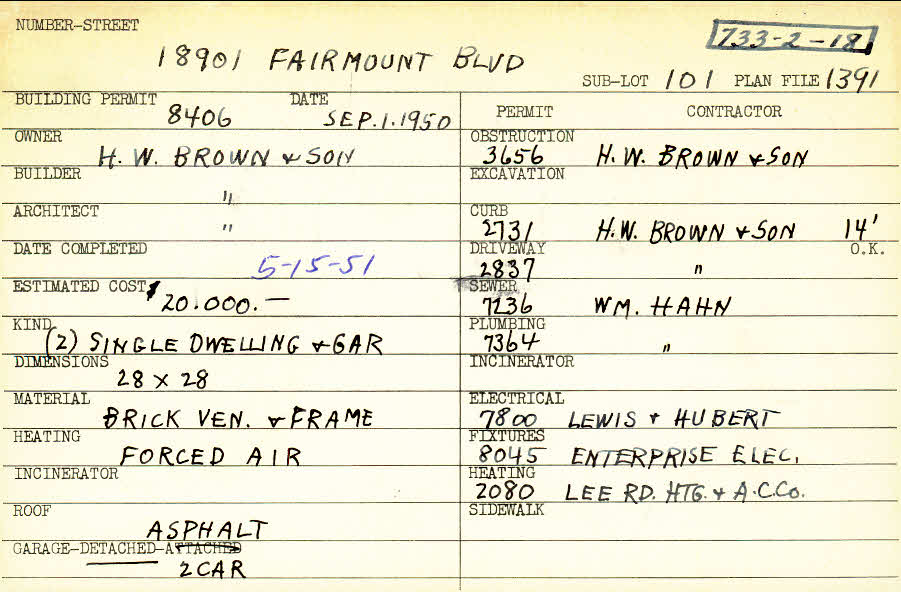 NUMBER-STREET
733-2-18
18901 FAIRMOUNT BLVD
SUB-LOT 101 PLAN FILE 1391
BUILDING PERMIT 8406 DATE SEP.1.1950
OWNER H. W. BROWN & SON
BUILDER "
ARCHITECT "
DATE COMPLETED 5-15-51
ESTIMATED COST $20.000.—
KIND (2) SINGLE DWELLING & GAR
DIMENSIONS 28 x 28
MATERIAL BRICK VEN. & FRAME
HEATING FORCED AIR
INCINERATOR
ROOF ASPHALT
GARAGE-DETACHED-ATTACHED
2 CAR
PERMIT CONTRACTOR
OBSTRUCTION
3656 H. W. BROWN & SON
EXCAVATION
CURB
2731 H.W. BROWN & SON 14'
DRIVEWAY O.K.
2837 "
SEWER
7236 WM. HAHN
PLUMBING
7364 "
INCINERATOR
ELECTRICAL
7800 LEWIS & HUBERT
FIXTURES
8045 ENTERPRISE ELEC.
HEATING
2080 LEE RD. HTG. & A.C.Co.
SIDEWALK